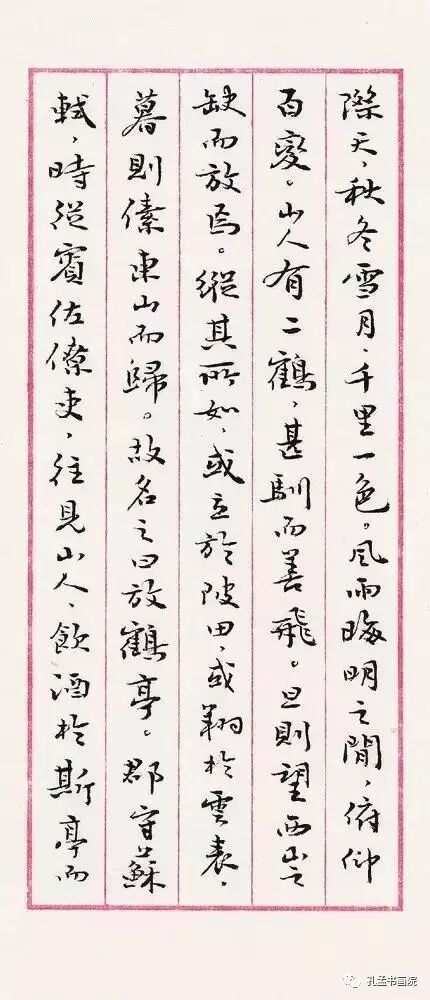 際天，秋冬雪月，千里一色。風雨晦明之間，俯仰
百變。山人有二鶴，甚馴而善飛。旦則望西山之
缺而放焉。縱其所如，或立於陂田，或翔於雲表，
暮則傃東山而歸。故名之曰放鶴亭。郡守蘇
軾，時從賓佐僚吏，往見山人，飲酒於斯亭而
孔孟书画院